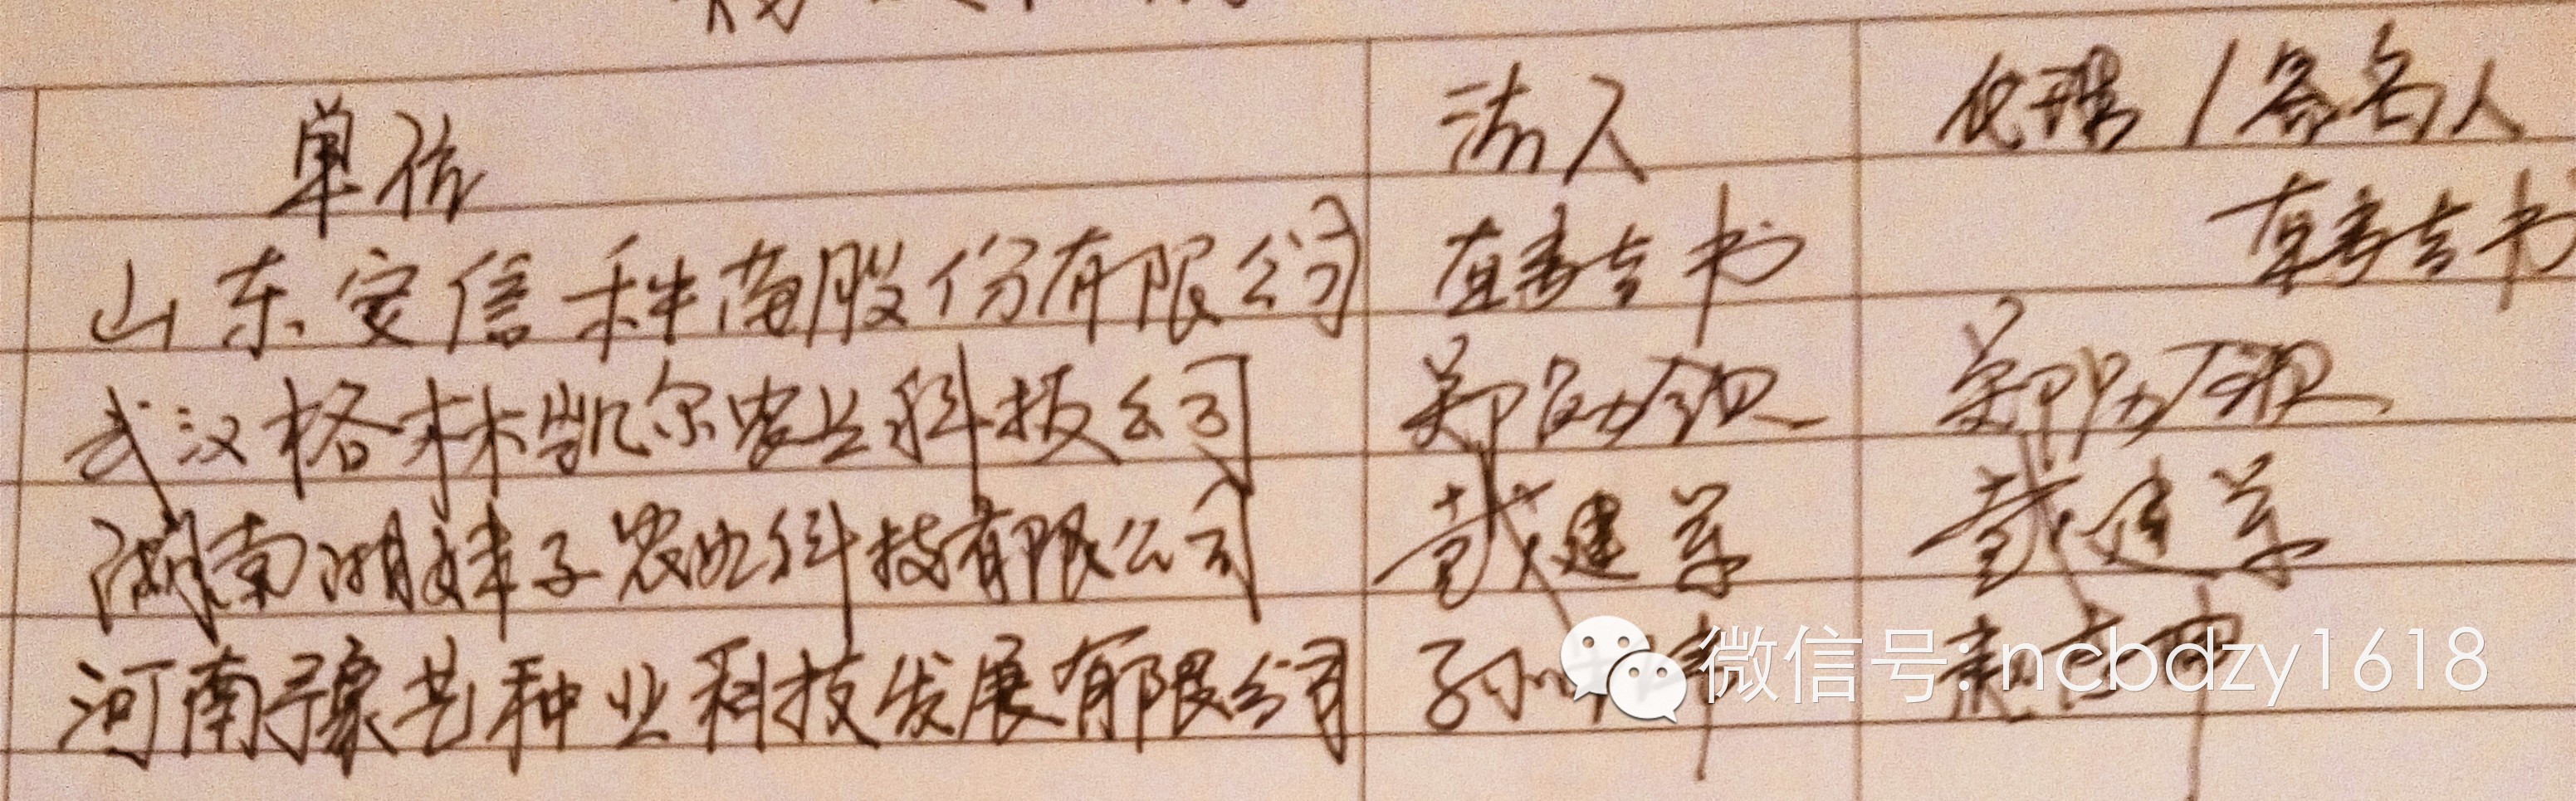 单位 法人 代理/签名人
山东安信种苗股份有限公司 有委专书 有委专书
武汉格林凯尔农业科技公司 郑
湖南湘妹子农业科技有限公司 戴建军 戴建军
河南豫艺种业科技发展有限公司 孙
微信号: ncbdzy1618